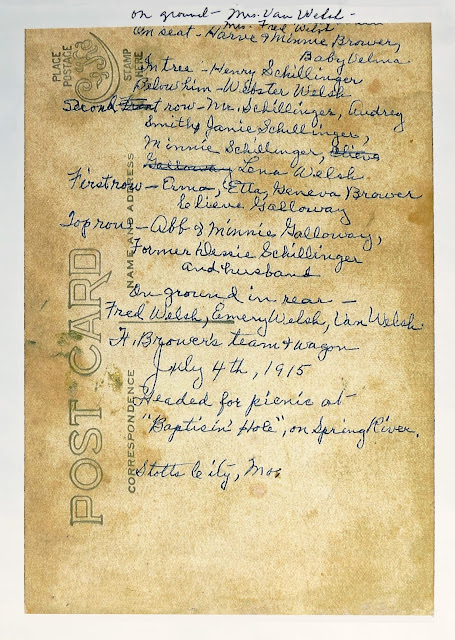 on ground - Mrs. Van Welsh -
Mrs. Fred Welsh
On seat - Harve & Minnie Brower,
Baby Velma
In tree - Henry Schillinger
Below him - Webster Welsh
Second front row - Mr. Schillinger, Audrey
Smith, Janie Schillinger,
Minnie Schillinger, Clieve
Galloway Lena Welsh
First row - Erma, Etta, Geneva Brower
Clieve Galloway
Top row - Abb & Minnie Galloway,
Former Dessie Schillinger
and husband
On ground in rear -
Fred Welsh, Emery Welsh, Van Welsh
H. Brower's team & wagon
July 4th, 1915
Headed for picnic at
"Baptisin' Hole", on Spring River.
Stotts City, Mo.
PLACE
POSTAGE
STAMP
HERE
NAME AND ADDRESS
POST CARD
CORRESPONDENCE